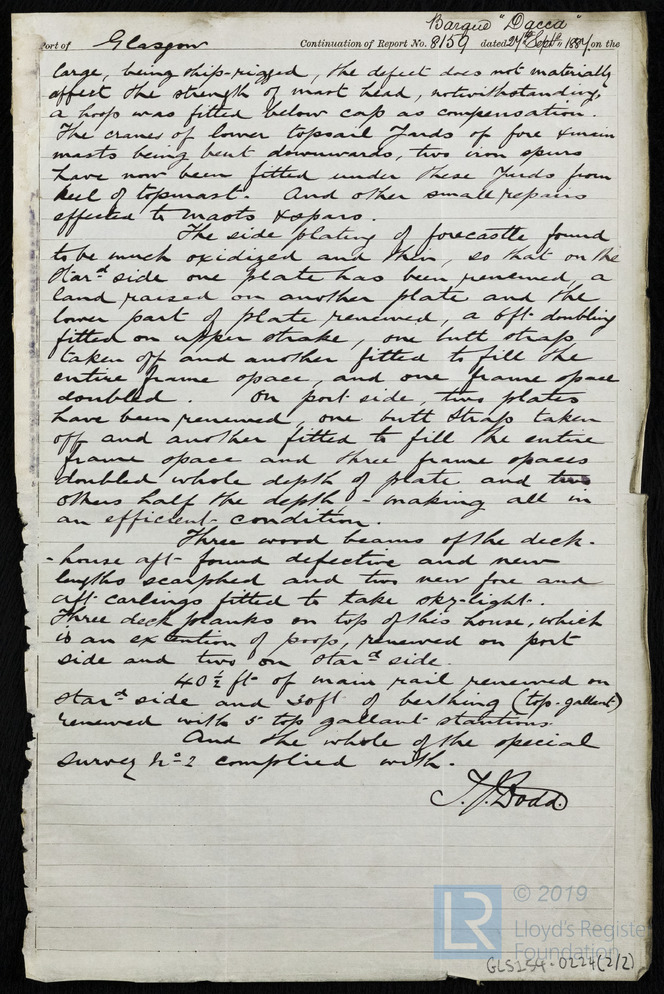 Barque "Dacca"
Port of Glasgow Continuation of Report No. 8159 dated 27th Septr 1887. on the
large, being ship-rigged, the defect does not materially
affect the strength of mast head, notwithstanding,
a hoop was fitted below cap as compensation.
The cranes of lower topsail Yards of fore & main
masts being bent downwards, two iron spurs
have now been fitted under these Yards from
heel of topmast. And other small repairs
effected to masts & spars.
The side plating of forecastle found
to be much oxidized and thin, so that on the
Stard side one plate has been renewed, a
land raised on another plate and the
lower part of plate renewed, a 6ft doubling
fitted on upper strake, one butt strap
taken off and another fitted to fill the
entire frame space, and one frame space
doubled. On port side, two plates
have been renewed, one butt strap taken
off and another fitted to fill the entire
frame space and three frame spaces
doubled whole depth of plate and two
others half the depth - making all in
an efficient condition.
Three wood beams of the deck-
-house aft found defective and new
lengths scarphed and two new fore and
aft carlings fitted to take sky-light.
Three deck planks on top of this house, which
is an extention of poop, renewed on port
side and two on Stard side.
40½ ft of main rail renewed on
Stard side and 30ft of berthing (top-gallant)
renewed with 5 top gallant stantions
And the whole of the special
survey No 2 complied with.
T. J. Dodd
LR
© 2019
Lloyd's Registe
Foundation
GLS254-0224(2/2)